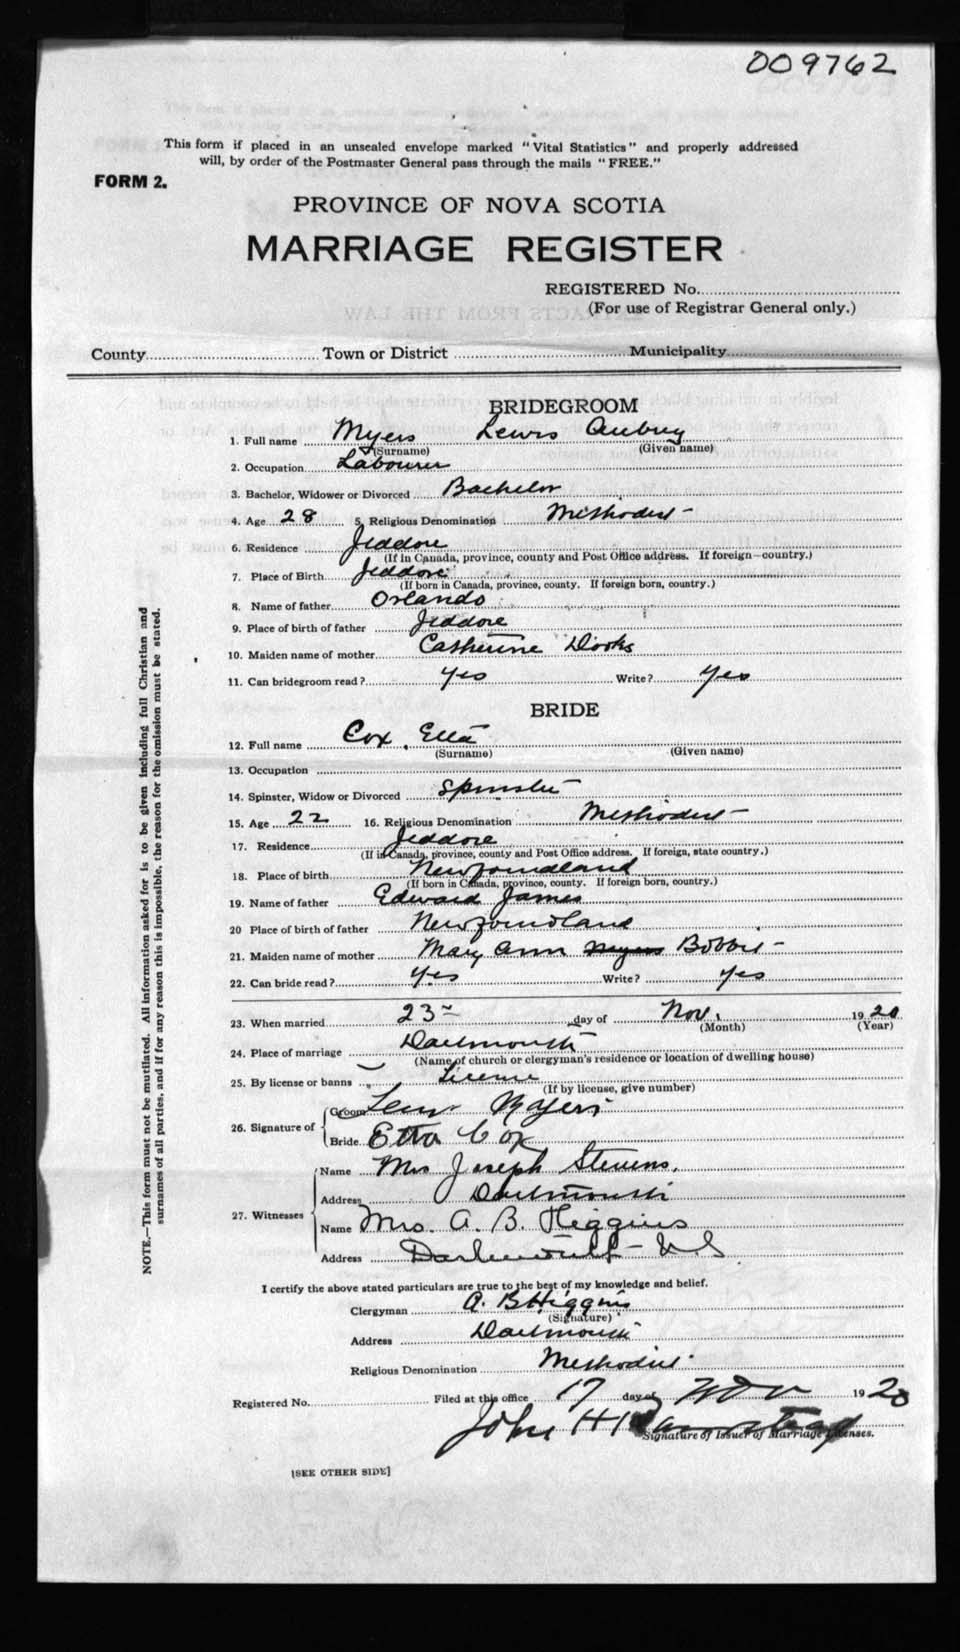 009762
This form if placed in an unsealed envelope marked "Vital Statistics" and properly addressed
will, by order of the Postmaster General pass through the mails "FREE."
FORM 2.
PROVINCE OF NOVA SCOTIA
MARRIAGE REGISTER
REGISTERED No.
(For use of Registrar General only.)
County Town or District Municipality
BRIDEGROOM
1. Full name Myers Lewis Aubrey
(Surname) (Given name)
2. Occupation Labourer
3. Bachelor, Widower or Divorced Bachelor
4. Age 28 5. Religious Denomination Methodist
6. Residence Jeddore
(If in Canada, province, county and Post Office address. If foreign—country.)
7. Place of Birth Jeddore
(If born in Canada, province, county. If foreign born, country.)
8. Name of father Orlando
9. Place of birth of father Jeddore
10. Maiden name of mother Catherine Dooks
11. Can bridegroom read? Yes Write? Yes
BRIDE
12. Full name Cox, Etta
(Surname) (Given name)
13. Occupation
14. Spinster, Widow or Divorced Spinster
15. Age 22 16. Religious Denomination Methodist
17. Residence Jeddore
(If in Canada, province, county and Post Office address. If foreign, state country.)
18. Place of birth Newfoundland
(If born in Canada, province, county. If foreign born, country.)
19. Name of father Edward James
20 Place of birth of father Newfoundland
21. Maiden name of mother Mary Ann Myers Bobbit
22. Can bride read? Yes Write? Yes
23. When married 23 day of Nov. 1920
(Month) (Year)
24. Place of marriage Dartmouth
(Name of church or clergyman's residence or location of dwelling house)
25. By license or banns License
(If by license, give number)
26. Signature of
Groom Lewis Myers
Bride Etta Cox
27. Witnesses
Name Mrs Joseph Stevens.
Address Dartmouth
Name Mrs. A. B. Higgins
Address Dartmouth - N S
I certify the above stated particulars are true to the best of my knowledge and belief.
Clergyman A. B Higgins
(Signature)
Address Dartmouth
Religious Denomination Methodist
Registered No. Filed at this office 17 day of Nov 1920
John H
Signature of Issuer of Marriage Licenses.
[SEE OTHER SIDE]
NOTE.—This form must not be mutilated. All information asked for is to be given including full Christian and
surnames of all parties, and if for any reason this is impossible, the reason for the omission must be stated.